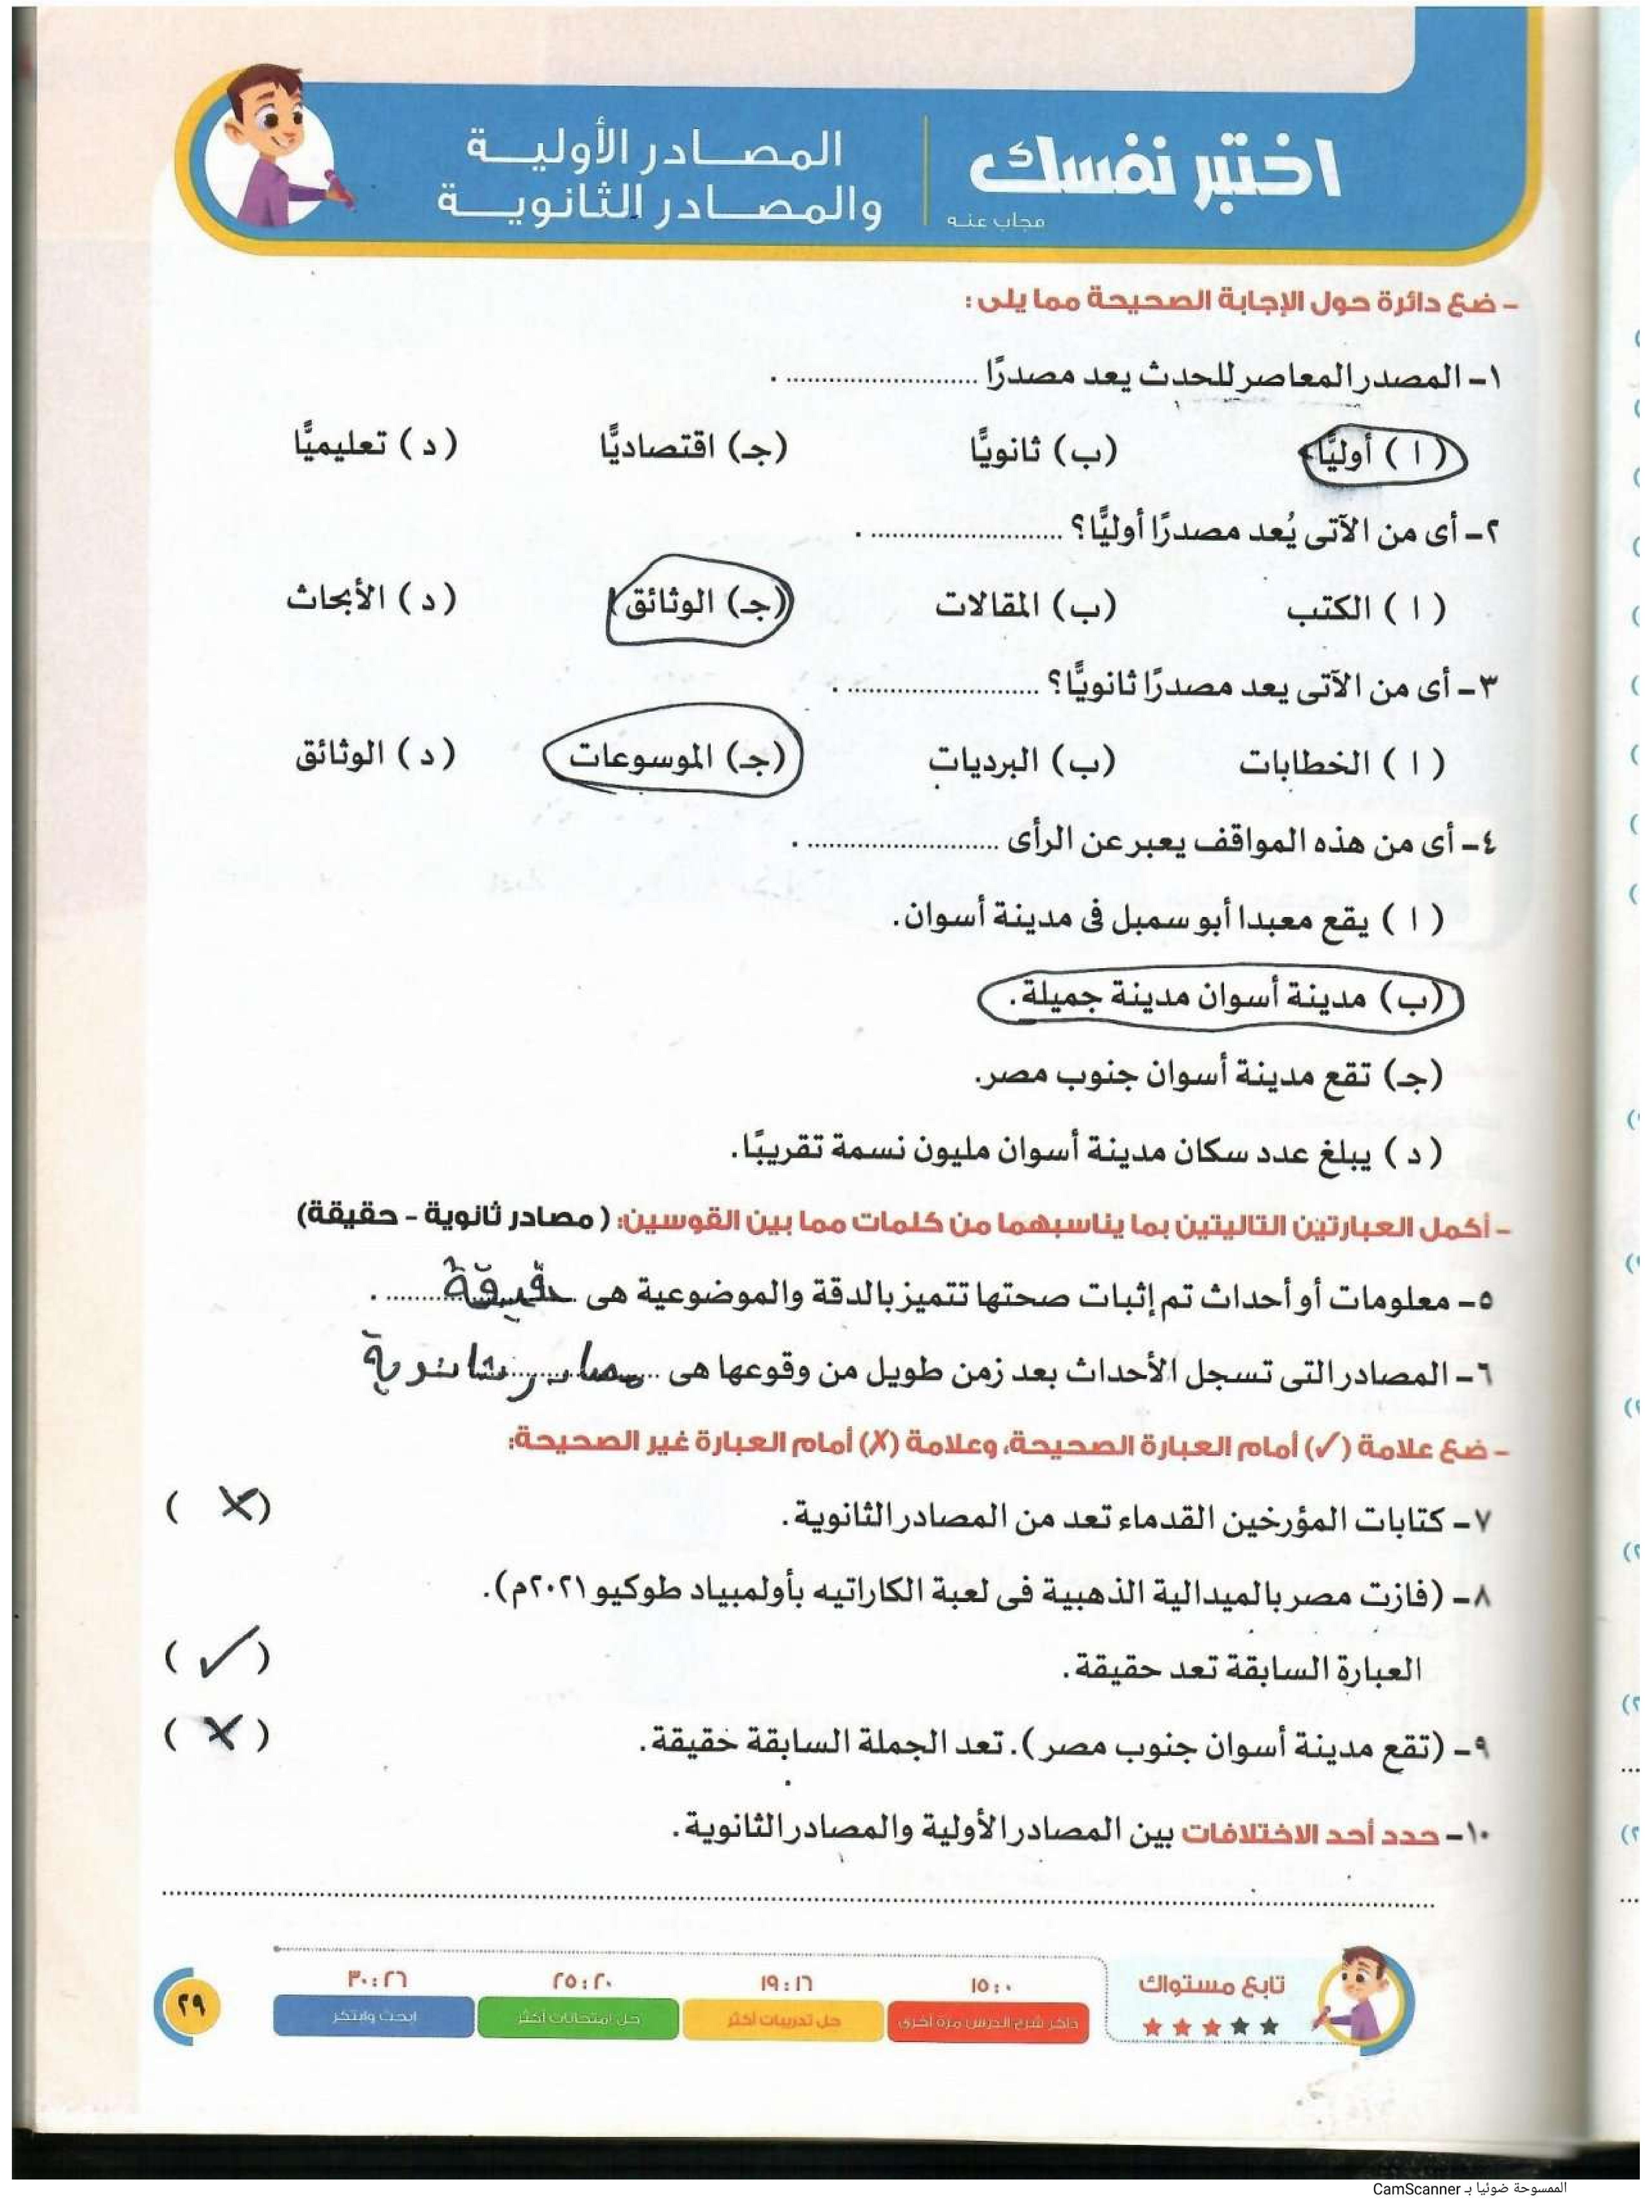 اختبر نفسك
مجاب عنه
المصادر الأولية
والمصادر الثانوية
- ضع دائرة حول الإجابة الصحيحة مما يلى :
١- المصدر المعاصر للحدث يعد مصدرًا .......................... .
( ا ) أوليًّا (ب) ثانويًّا (جـ) اقتصاديًّا ( د ) تعليميًّا
٢- أى من الآتى يُعد مصدرًا أوليًّا؟ .......................... .
( ا ) الكتب (ب) المقالات (جـ) الوثائق ( د ) الأبحاث
٣- أى من الآتى يعد مصدرًا ثانويًّا؟ .......................... .
( ا ) الخطابات (ب) البرديات (جـ) الموسوعات ( د ) الوثائق
٤- أى من هذه المواقف يعبر عن الرأى .......................... .
( ا ) يقع معبدا أبو سمبل فى مدينة أسوان.
(ب) مدينة أسوان مدينة جميلة.
(جـ) تقع مدينة أسوان جنوب مصر.
( د ) يبلغ عدد سكان مدينة أسوان مليون نسمة تقريبًا.
- أكمل العبارتين التاليتين بما يناسبهما من كلمات مما بين القوسين: ( مصادر ثانوية - حقيقة)
٥- معلومات أو أحداث تم إثبات صحتها تتميز بالدقة والموضوعية هى حقيقة .
٦- المصادر التى تسجل الأحداث بعد زمن طويل من وقوعها هى مصادر ثانوية
- ضع علامة (✓) أمام العبارة الصحيحة، وعلامة (✗) أمام العبارة غير الصحيحة:
٧- كتابات المؤرخين القدماء تعد من المصادر الثانوية. ( ✗ )
٨- (فازت مصر بالميدالية الذهبية فى لعبة الكاراتيه بأولمبياد طوكيو ٢٠٢١م).
العبارة السابقة تعد حقيقة. ( ✓ )
٩- (تقع مدينة أسوان جنوب مصر). تعد الجملة السابقة حقيقة. ( ✗ )
١٠- حدد أحد الاختلافات بين المصادر الأولية والمصادر الثانوية.
تابع مستواك
١٥ : ٠ ١٩ : ١٦ ٢٥ : ٢٠ ٣٠ : ٢٦
ذاكر شرح الدرس مرة أخرى حل تدريبات أكثر حل امتحانات أكثر ابحث وابتكر
٢٩
الممسوحة ضوئيا بـ CamScanner